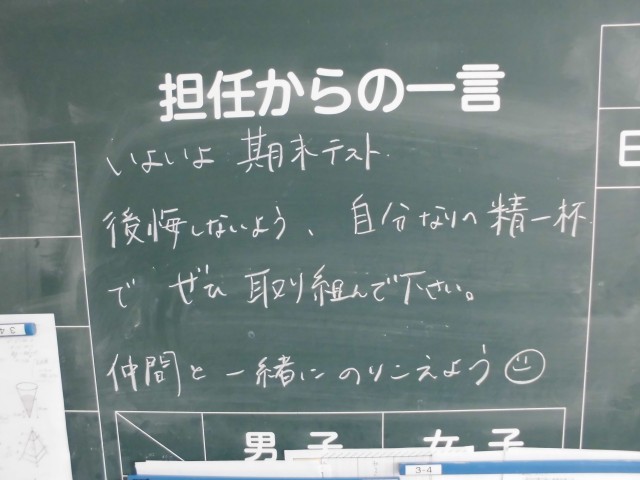 担任からの一言
いよいよ 期末テスト.
後悔しないよう、自分なりの精一杯
で ぜひ 取り組んで下さい。
仲間と一緒にのりこえよう
男子 女子
日
3-4
3-4